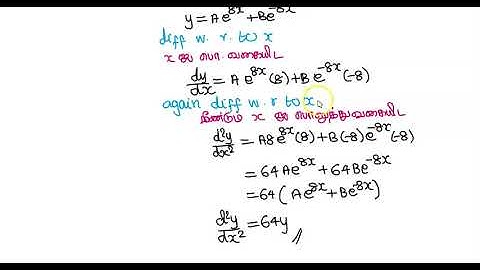 y = Ae^{8x} + Be^{-8x}
diff w. r. to x
x ஐ பொ. வகையிட
dy/dx = A e^{8x}(8) + B e^{-8x}(-8)
again diff w. r to x
மீண்டும் x ஐ பொறுத்து வகையிட
d²y/dx² = A8e^{8x}(8) + B(-8)e^{-8x}(-8)
= 64Ae^{8x} + 64Be^{-8x}
= 64(Ae^{8x} + Be^{-8x})
d²y/dx² = 64y //